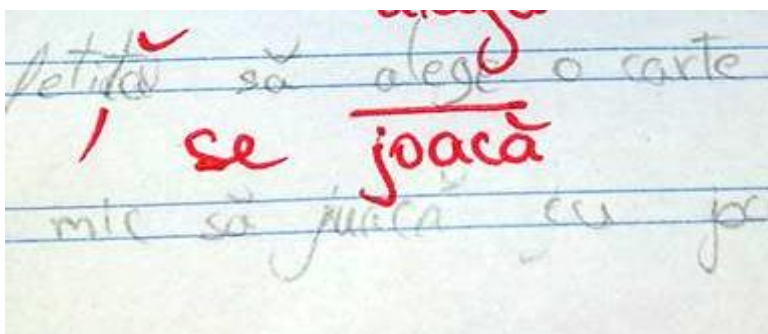 fetiță să alege o carte
se joacă
mic să juacă cu